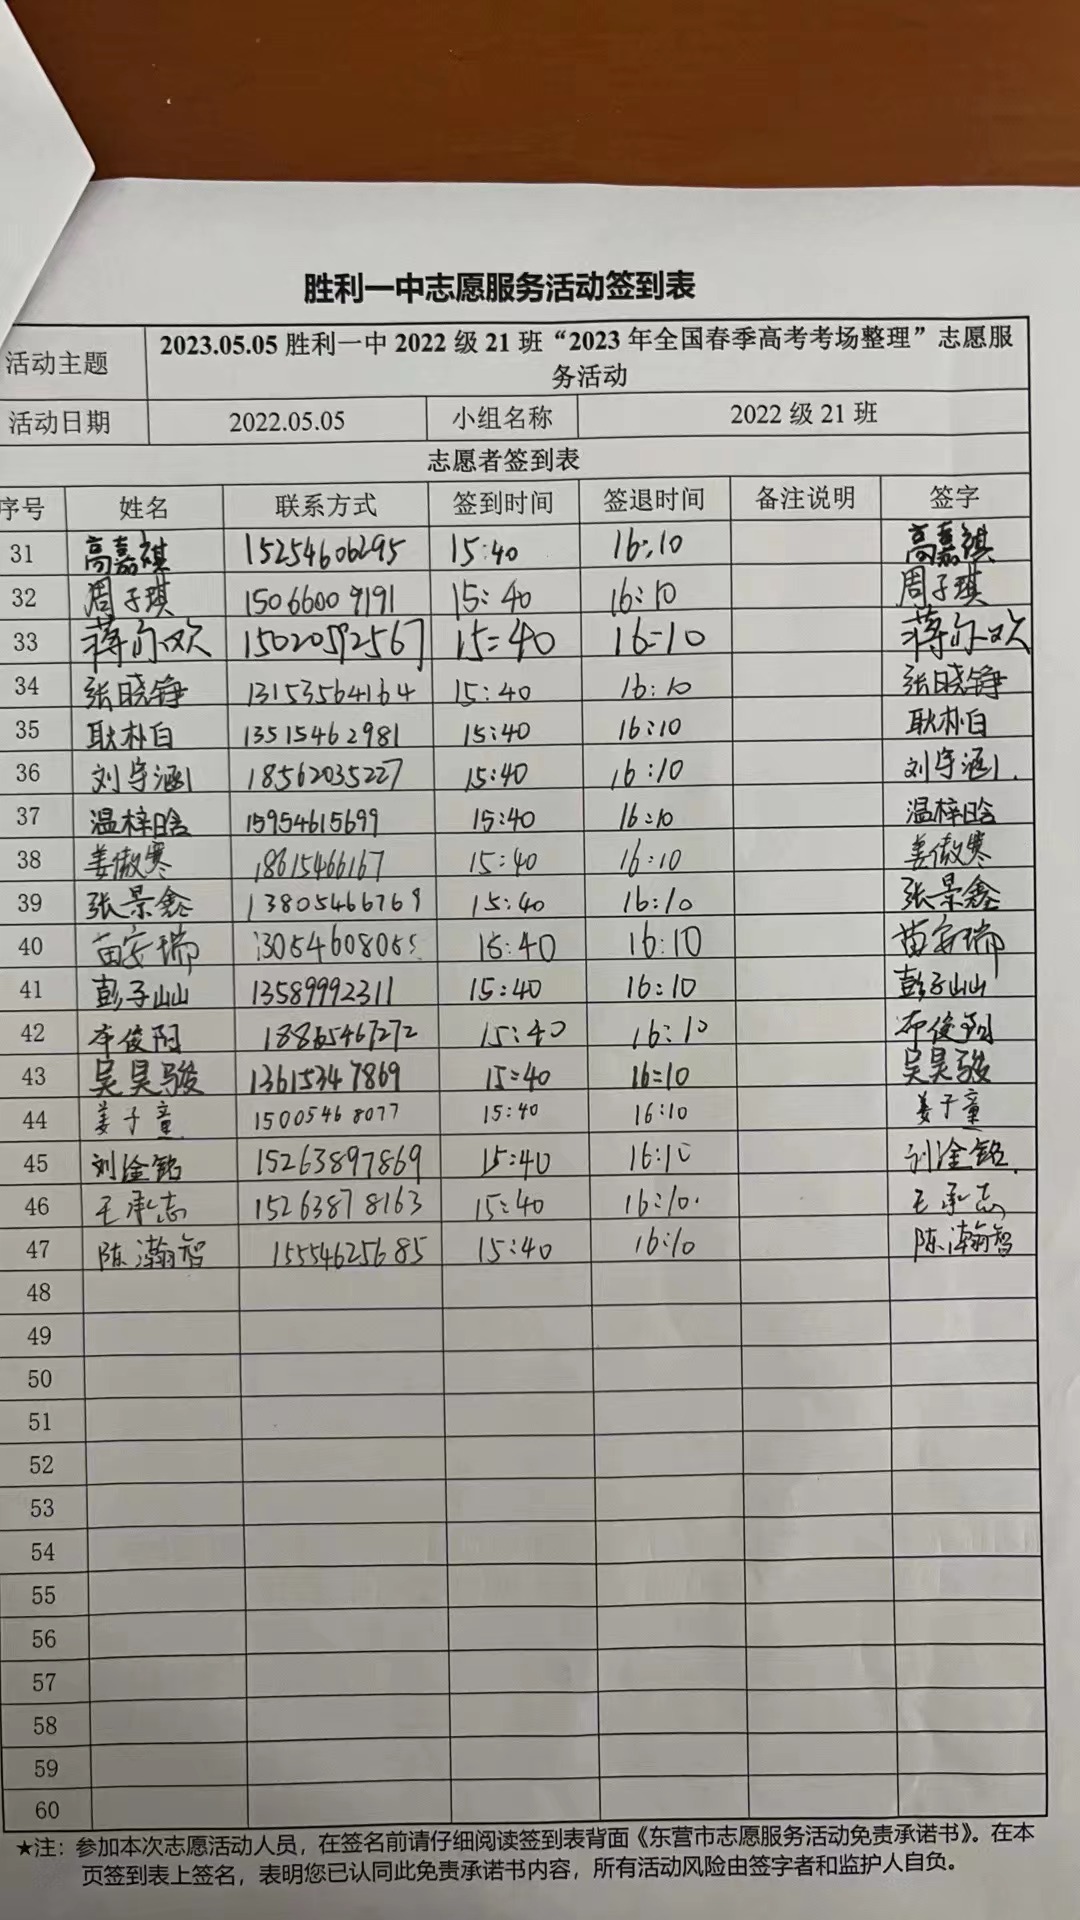 胜利一中志愿服务活动签到表
活动主题 2023.05.05 胜利一中 2022 级 21 班“2023 年全国春季高考考场整理”志愿服
务活动
活动日期 2022.05.05 小组名称 2022 级 21 班
志愿者签到表
序号 姓名 联系方式 签到时间 签退时间 备注说明 签字
31 高嘉祺 15254606295 15:40 16:10 高嘉祺
32 周子琪 15066009191 15:40 16:10 周子琪
33 蒋尔欢 15020592567 15:40 16:10 蒋尔欢
34 张晓铮 13153564164 15:40 16:10 张晓铮
35 耿朴白 13515462981 15:40 16:10 耿朴白
36 刘宇涵 18562035227 15:40 16:10 刘宇涵
37 温梓晗 15954615699 15:40 16:10 温梓晗
38 姜傲寒 18615466167 15:40 16:10 姜傲寒
39 张景鑫 13805466769 15:40 16:10 张景鑫
40 苗安瑞 15:40 16:10 苗安瑞
41 彭子山山 13589992311 15:40 16:10 彭子山山
42 18865467272 15:40 16:10
43 吴昊骏 13615347869 15:40 16:10 吴昊骏
44 姜子童 15005468077 15:40 16:10 姜子童
45 刘淦铭 15263897869 15:40 16:10 刘淦铭
46 王承志 15263878163 15:40 16:10 王承志
47 陈瀚智 15554625685 15:40 16:10 陈瀚智
48
49
50
51
52
53
54
55
56
57
58
59
60
★注：参加本次志愿活动人员，在签名前请仔细阅读签到表背面《东营市志愿服务活动免责承诺书》。在本
页签到表上签名，表明您已认同此免责承诺书内容，所有活动风险由签字者和监护人自负。